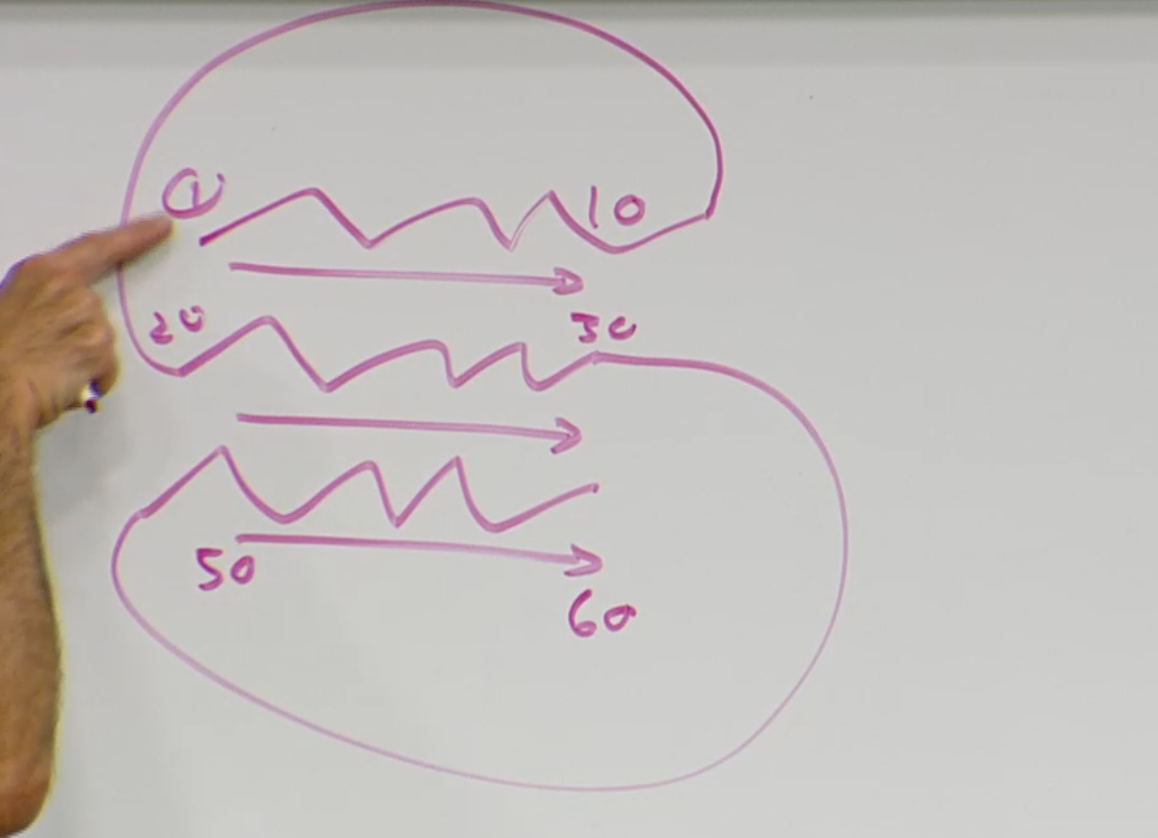 1 10
20 30
50
60